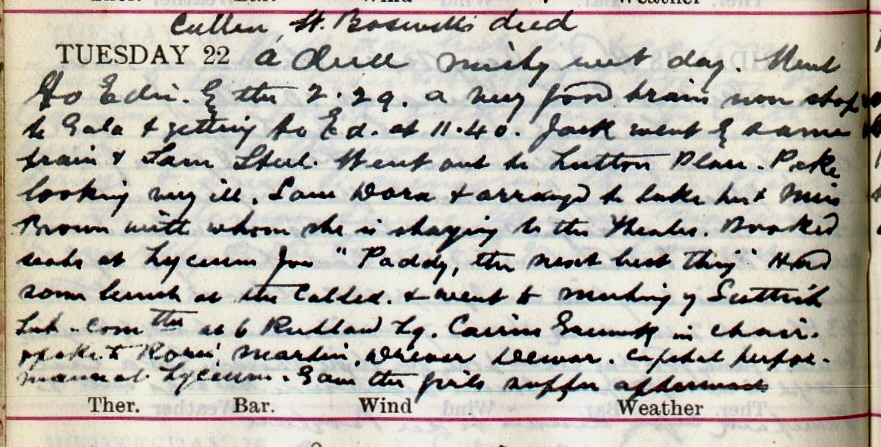 Cullen, St. Boswells died
TUESDAY 22 a dull misty wet day. Went
to Edin. by the 2.29. a very good train non stop
to Gala & getting to Ed. at 11.40. Jack went by same
train & Sam Steel. Went out to Lutton Place. Poke
looking very ill. Saw Dora & arranged to take her & Miss
Brown with whom she is staying to the Theatre. Booked
seats at Lyceum for "Paddy, the next best thing" Had
some lunch at the Caledon. & went to meeting of Scottish
Lib. Com at 6 Rutland Sq. Cairns in chair.
spoke to Martin, Dewar. Capital perfor-
mance at Lyceum. Gave the girls supper afterwards
Ther. Bar. Wind Weather